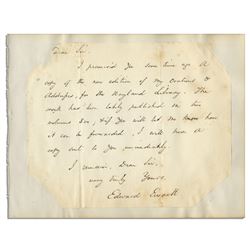 Dear Sir.
I promised you some time ago a
copy of the new edition of my Orations &
Addresses, for the Maryland Library. The
work has been lately published in two
volumes 8vo; & if you will let me know how
it can be forwarded, I will have a
copy sent to you immediately.
I remain, Dear Sir,
very truly Yours,
Edward Everett